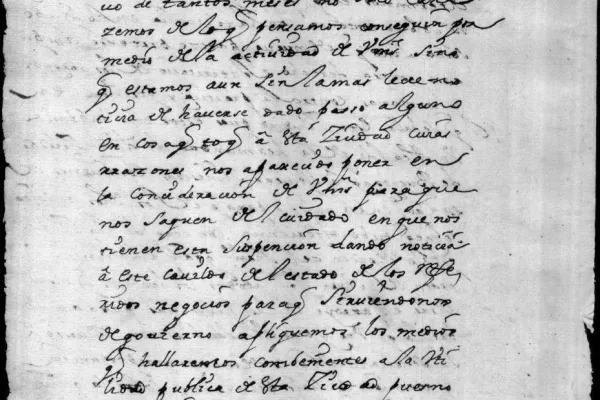 uo de tantos meses no
zemos de lo q̃ pensamos conseguir por
medio de la actiuidad de Vms sino
q̃ estamos aun sin la mas leue no
ticia de hauerse dado passo alguno
en cosa q̃ toq̃ â esta Ziudad cuias
rrazones nos a parecido poner en
la concideración de Vms para que
nos saquen del cuidado en que nos
tienen esta suspención dando noticia
â este cauildo del estado de los refe
ridos negocios para q̃ siruiendonos
de gouierno apliquemos los medios
q̃ hallaremos combenientes a la Vti
lidad publica de esta Ziudad